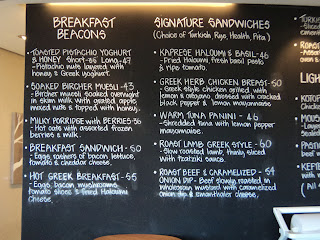 BREAKFAST
BEACONS
• TOASTED PISTACHIO YOGHURT
& HONEY Short-36 Long-47
- Pistachio nuts layered with
honey & Greek yoghurt.
• SOAKED BIRCHER MUESLI - 43
- Bircher muesli soaked overnight
in skim milk with grated apple
mixed nuts & topped with honey.
• MILKY PORRIDGE with BERRIES-36
- Hot oats with assorted frozen
berries & milk.
• BREAKFAST SANDWICH - 50
- Eggs rashers of bacon lettuce,
tomato & cheddar cheese.
• HOT GREEK BREAKFAST - 55
- Eggs bacon mushrooms
tomato slices & fried Haloumi
Cheese.
SIGNATURE SANDWICHES
(Choice of Turkish, Rye, Health, Pita)
• KAPRESE HALOUMI & BASIL - 46
- Fried Haloumi, fresh basil pesto
& ripe tomato.
• GREEK HERB CHICKEN BREAST - 50
- Greek style chicken grilled with
lemon & oregano dressed with cracked
black pepper & lemon mayonnaise
• WARM TUNA PANINI - 46
- Shredded tuna with lemon pepper
mayonnaise.
• ROAST LAMB GREEK STYLE - 60
- Slow roasted lamb, thinly sliced
with tzatziki sauce.
• ROAST BEEF & CARAMELIZED - 54
ONION DIP - Beef slowly roasted on
wholegrain mustard with caramelized
onion dip &
cheese.
TURKISH
LIGHT
KOTOP
PASTA